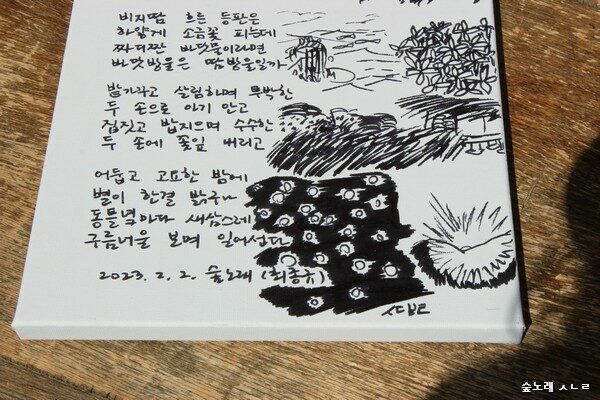 비지땀 흐른 등판은
하얗게 소금꽃 피는데
짜디짠 바닷물이라면
바닷방울은 땀방울일까
밭가라고 살림하며 투박한
두 손으로 아기 안고
집짓고 밥지으며 수수한
두 손에 꽃잎 내리고
어둡고 고요한 밤에
별이 한결 밝구나
동틀녘마다 새삼스레
구름너울 보며 일어선다
2023. 2. 2. 숲노래 (최종규)
숲노래 ㅅㄴㄹ